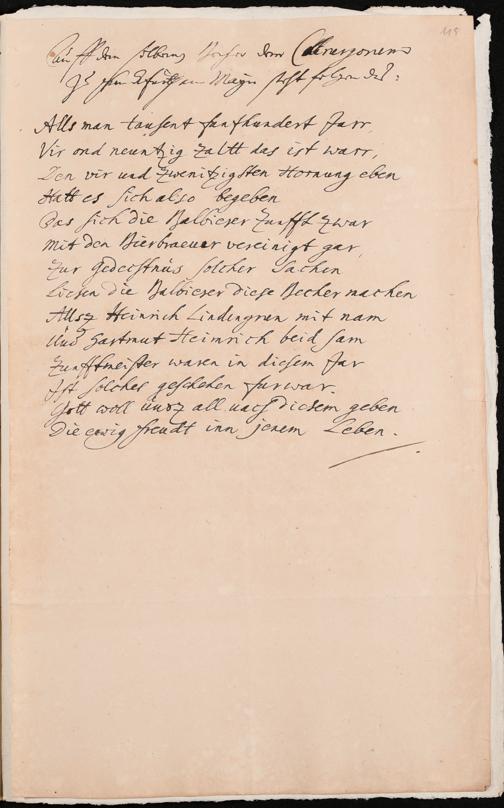 119
Auff dem silbern Becher der Chirurgorum
Zu Franckfurth am Mayn stehet folgendes:
Alls man tausent funfhundert Jarr,
Vir ond neuntzig zaltt das ist warr,
Den vir und zwenitzigsten Hornung eben
Hatt es sich also begeben
Das sich die Balbierer Zunfft zwar
Mit den Bierbraeuer vereinigt gar,
Zur gedechtnus solcher Sachen
Liesen die Balbierer diese Becher machen
Allsz Heinrich Lindengrun mit nam
Und Hartmut Heinrich beid sam
Zunfftmeister waren in diesem Jar
Ist solches geschehen furwar.
Gott woll unsz all nach diesem geben
Die ewig freudt inn jenem Leben.